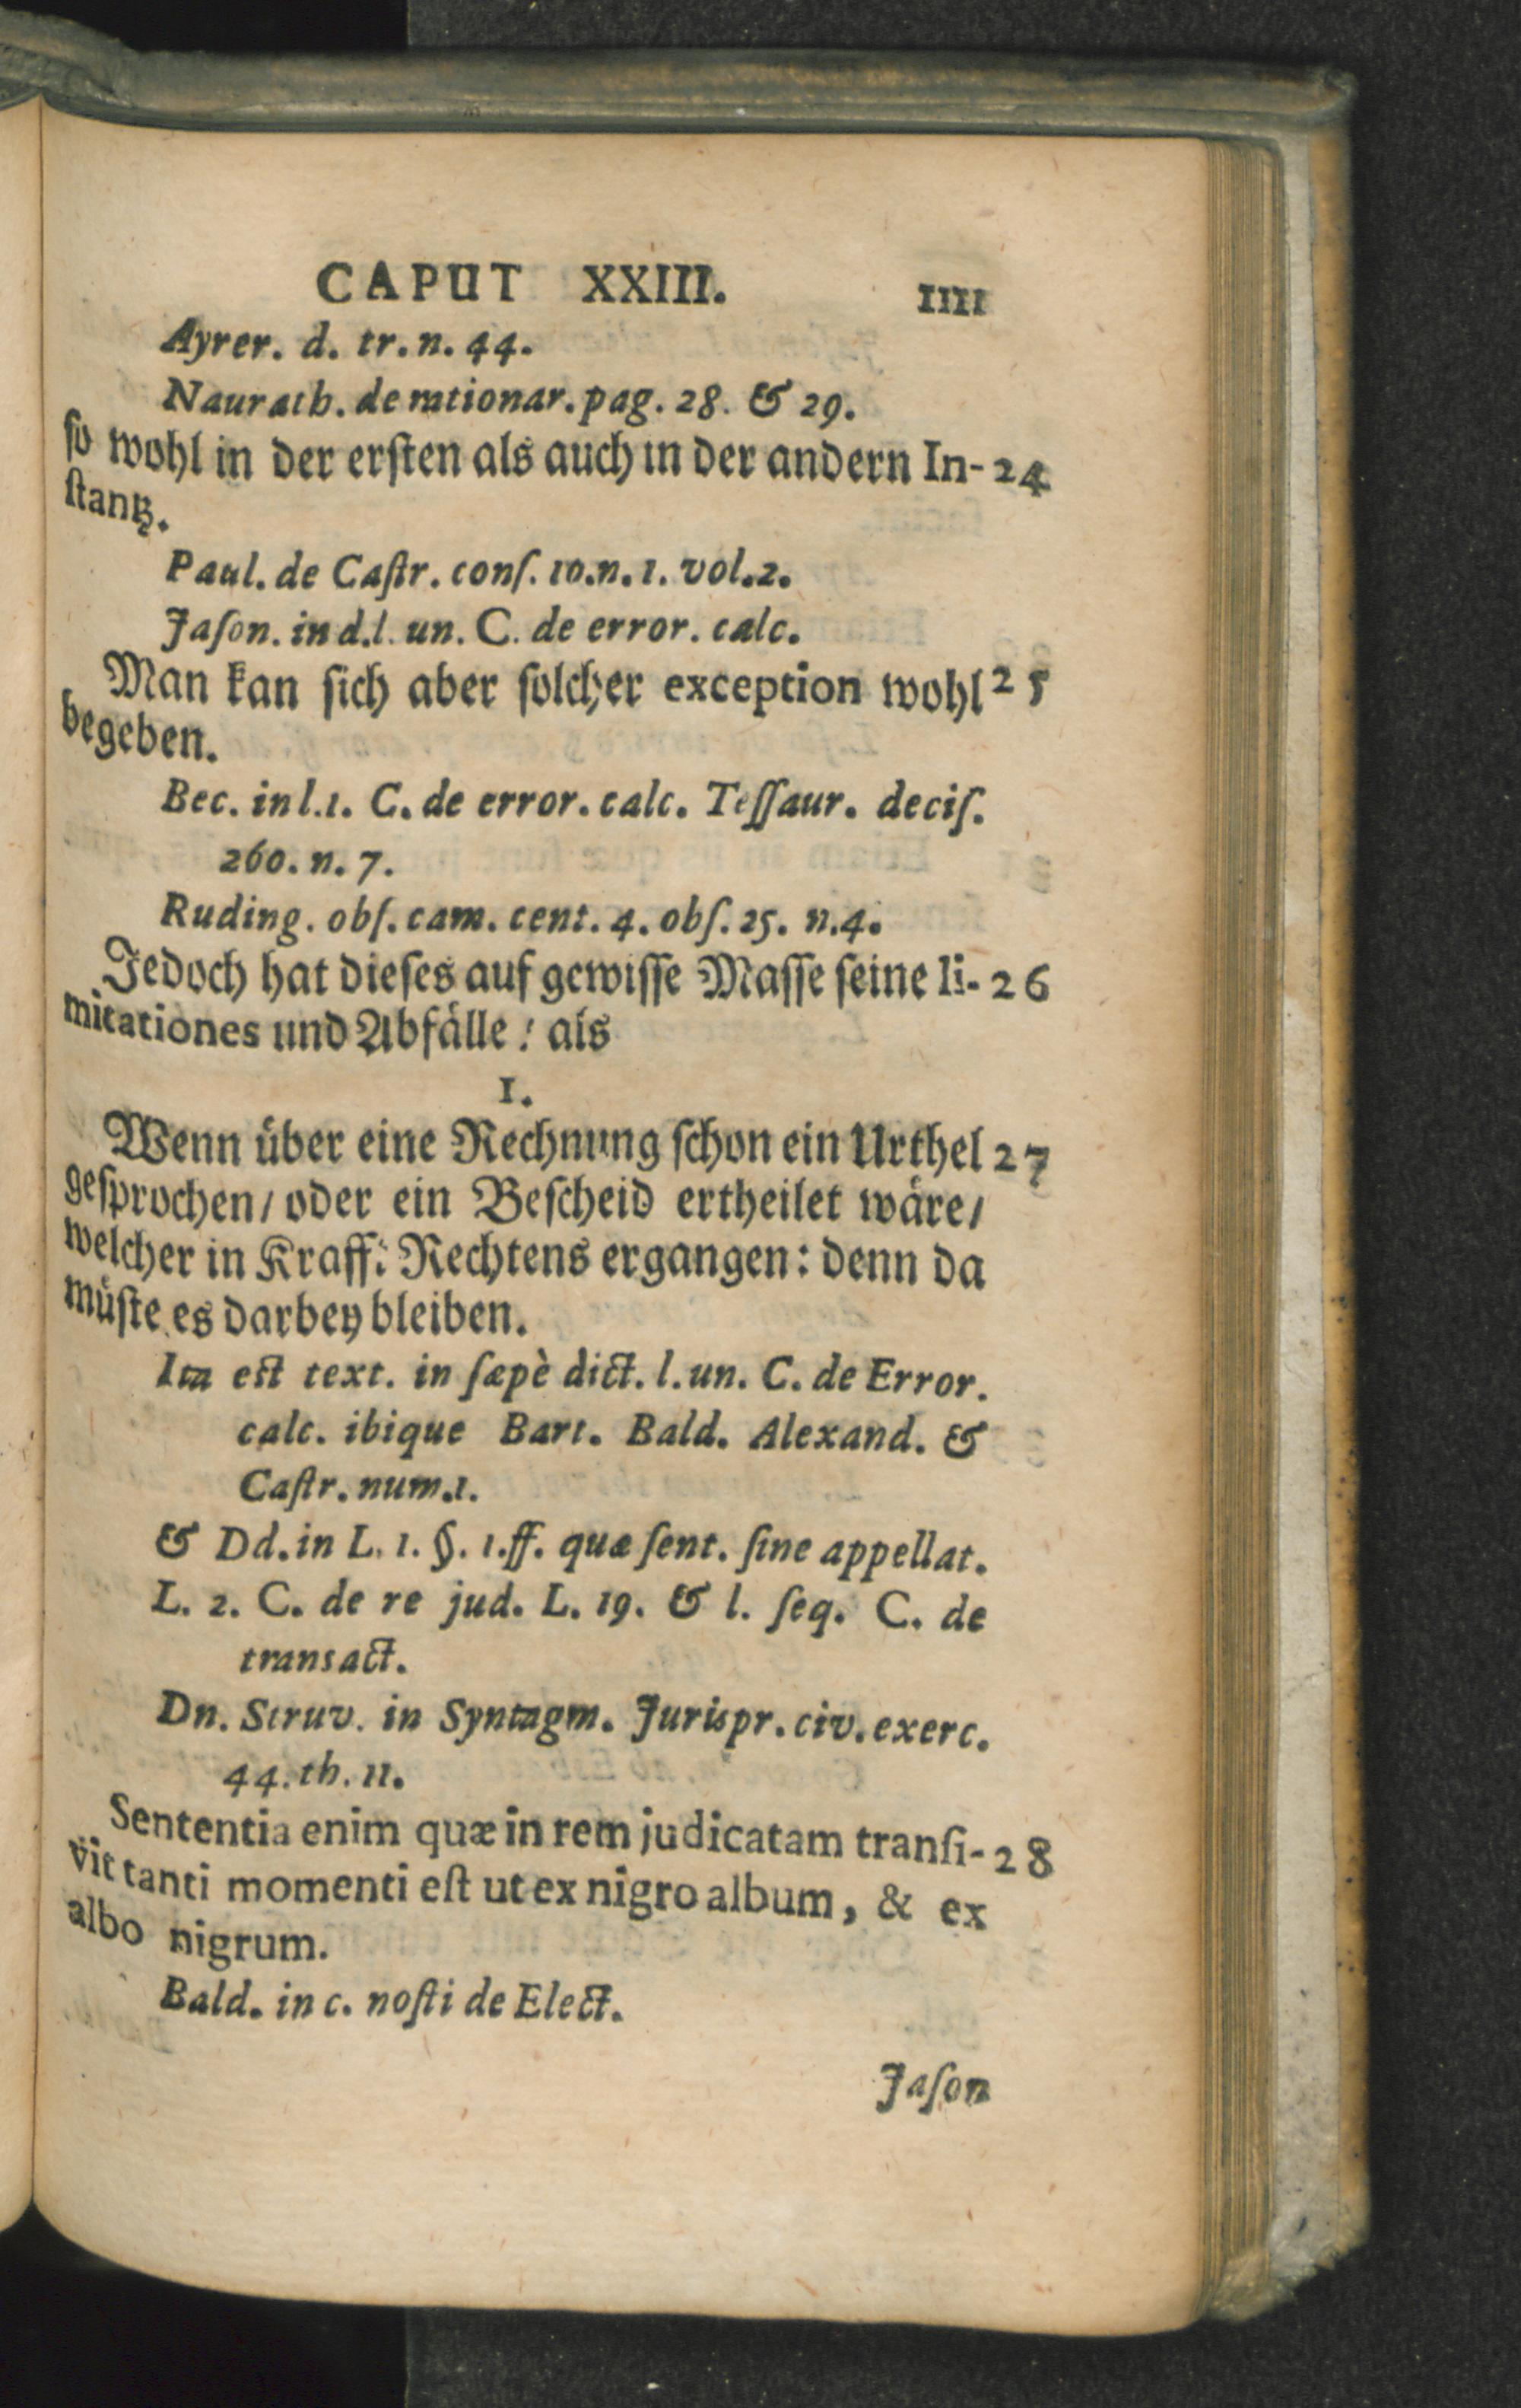 CAPUT XXIII. 1111
Ayrer. d. tr. n. 44.
Naurath. de rationar. pag. 28. & 29.
ſo wohl in der erſten als auch in der andern In- 24
ſtantz.
Paul. de Caſtr. conſ. 10. n. 1. vol. 2.
Jaſon. in d. l. un. C. de error. calc.
Man kan ſich aber ſolcher exception wohl 25
begeben.
Bec. in l. 1. C. de error. calc. Teſſaur. deciſ.
260. n. 7.
Ruding. obſ. cam. cent. 4. obſ. 25. n. 4.
Jedoch hat dieſes auf gewiſſe Maſſe ſeine li- 26
mitationes und Abfälle: als
1.
Wenn über eine Rechnung ſchon ein Urthel 27
geſprochen/ oder ein Beſcheid ertheilet wäre/
welcher in Krafft Rechtens ergangen: denn da
müſte es darbey bleiben.
Ita eſt text. in ſæpè dict. l. un. C. de Error.
calc. ibique Bart. Bald. Alexand. &
Caſtr. num. 1.
& Dd. in L. 1. §. 1. ff. quæ ſent. ſine appellat.
L. 2. C. de re jud. L. 19. & l. ſeq. C. de
transact.
Dn. Struv. in Syntagm. Jurispr. civ. exerc.
44. th. 11.
Sententia enim quæ in rem judicatam tranſi- 28
vit tanti momenti eſt ut ex nigro album, & ex
albo nigrum.
Bald. in c. noſti de Elect.
Jaſon